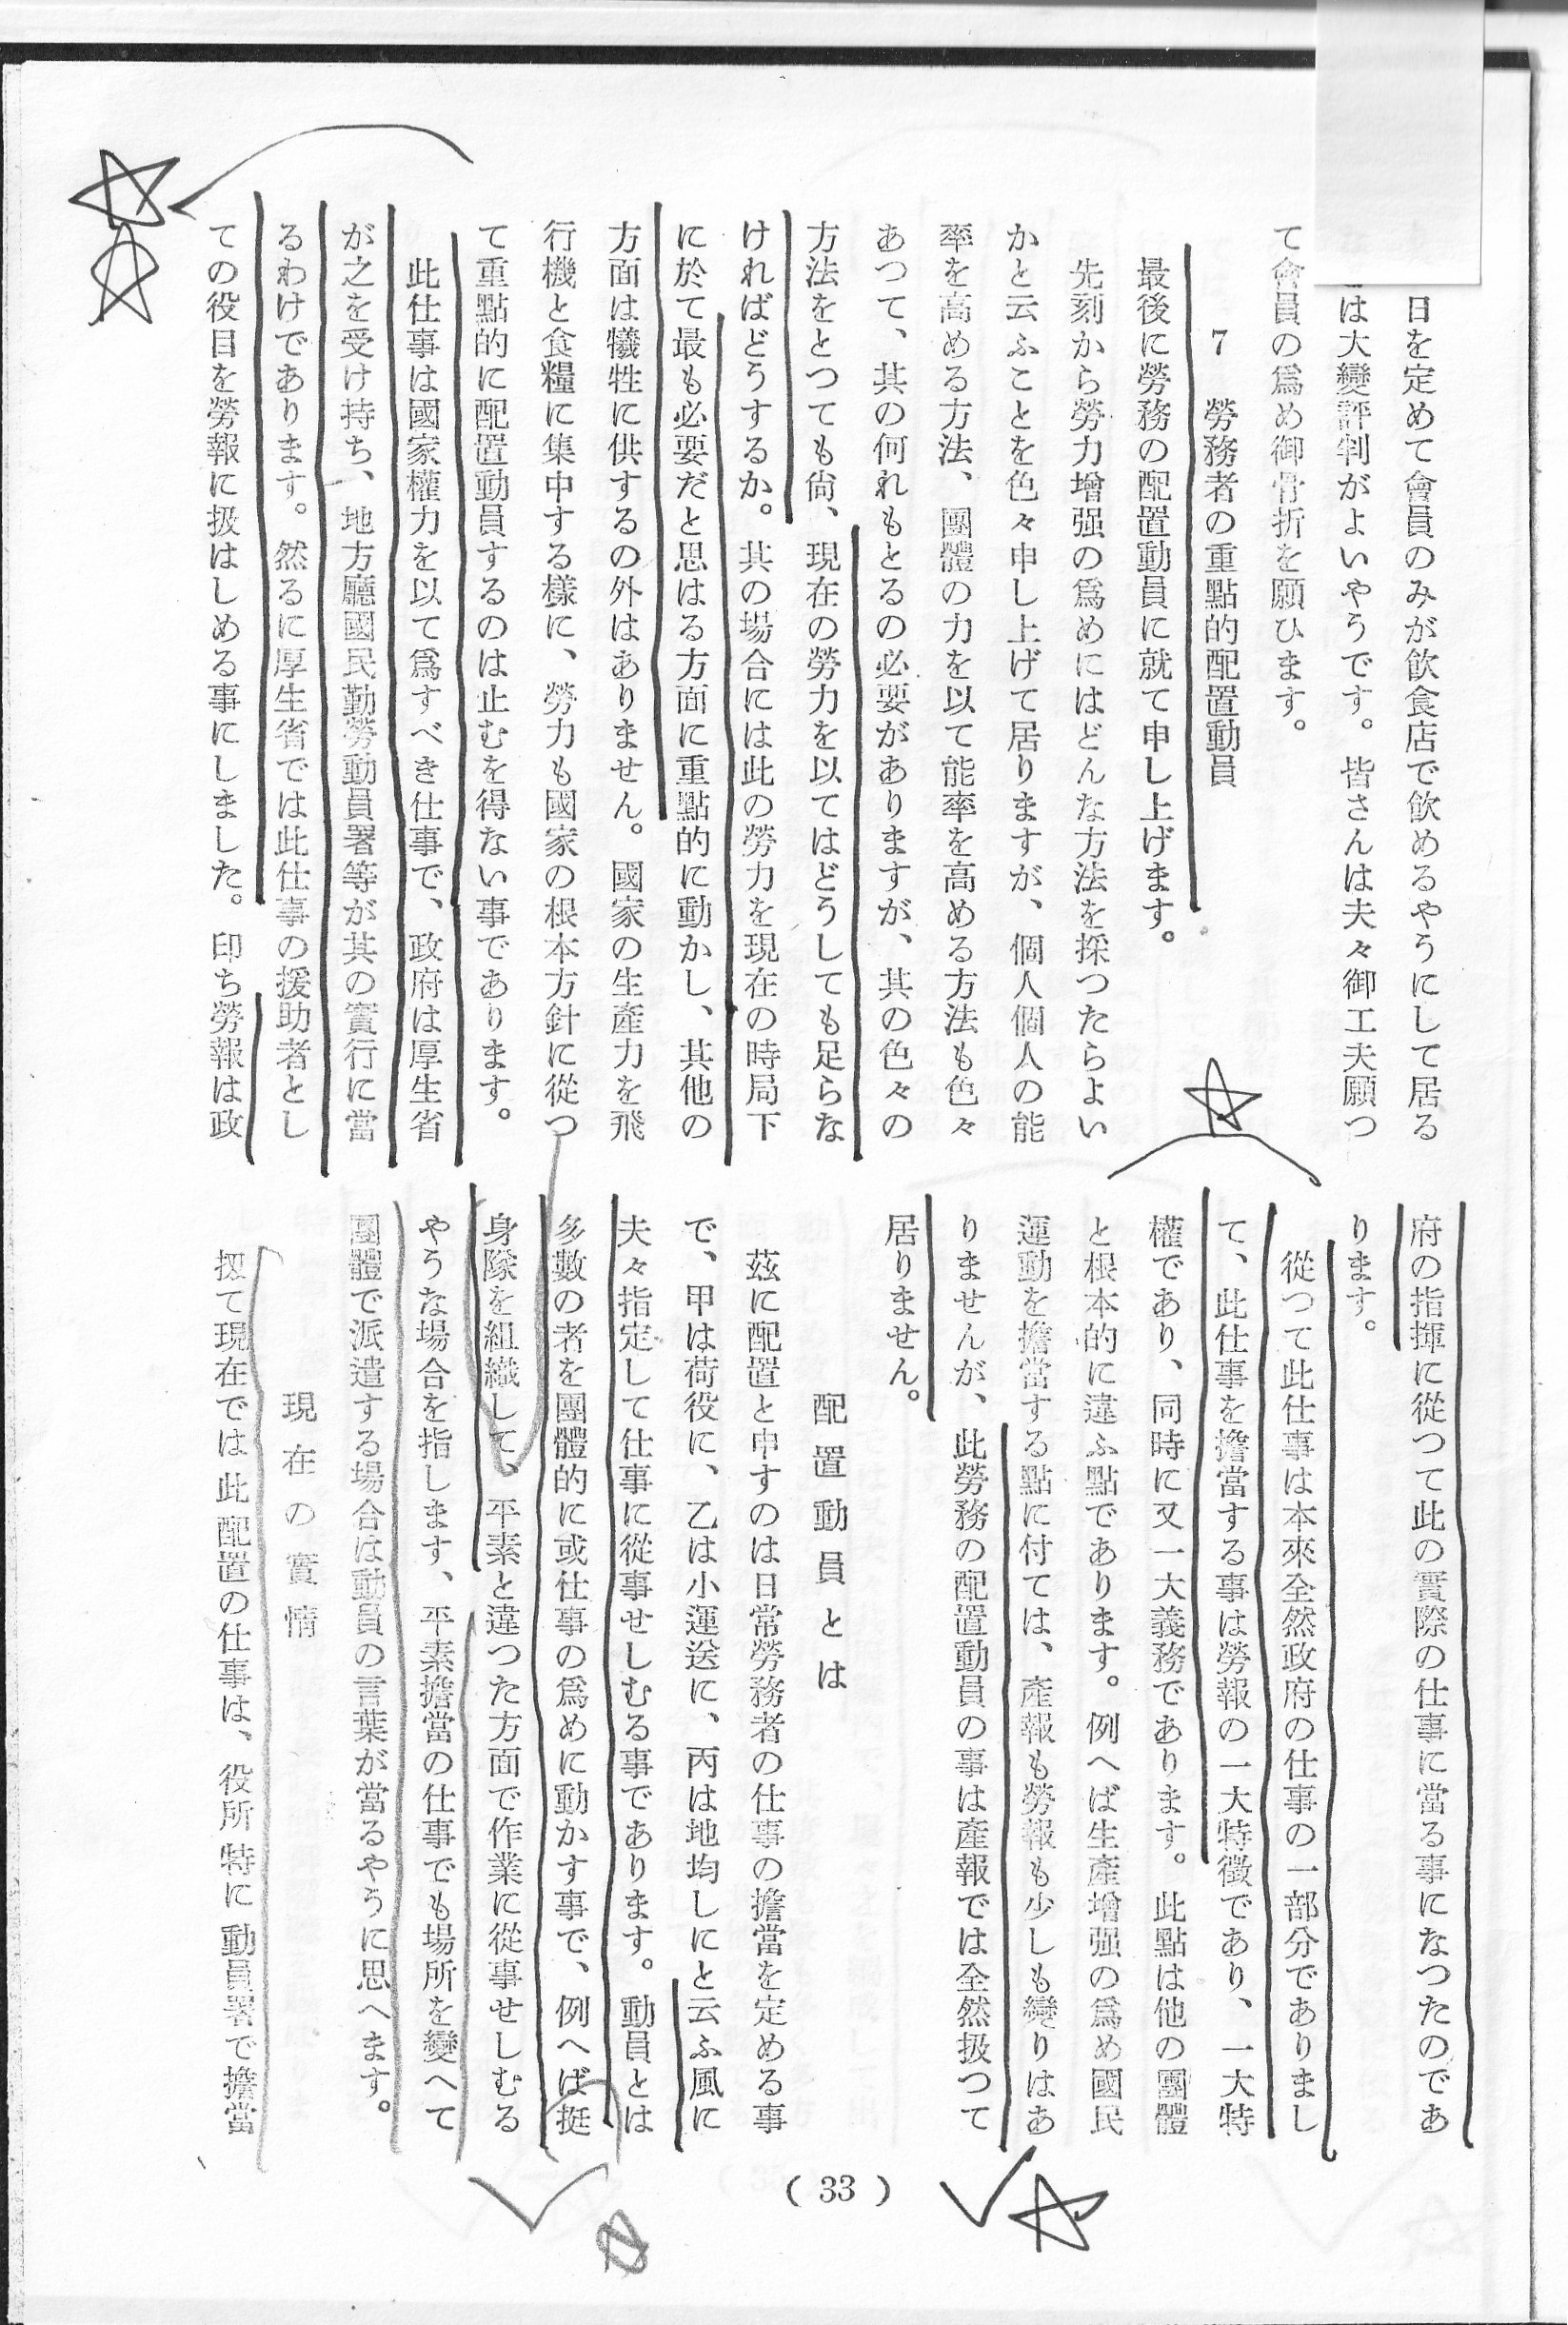 日を定めて會員のみが飲食店で飲めるやうにして居る
は大變評判がよいやうです。皆さんは夫々御工夫願つ
て會員の爲め御骨折を願ひます。
7 勞務者の重點的配置動員
最後に勞務の配置動員に就て申し上げます。
先刻から勞力增强の爲めにはどんな方法を採つたらよい
かと云ふことを色々申し上げて居りますが、個人個人の能
率を高める方法、團體の力を以て能率を高める方法も色々
あつて、其の何れもとるの必要がありますが、其の色々の
方法をとつても尙、現在の勞力を以てはどうしても足らな
ければどうするか。其の場合には此の勞力を現在の時局下
に於て最も必要だと思はる方面に重點的に動かし、其他の
方面は犧牲に供するの外はありません。國家の生產力を飛
行機と食糧に集中する樣に、勞力も國家の根本方針に從つ
て重點的に配置動員するのは止むを得ない事であります。
此仕事は國家權力を以て爲すべき仕事で、政府は厚生省
が之を受け持ち、地方廳國民勤勞動員署等が其の實行に當
るわけであります。然るに厚生省では此仕事の援助者とし
ての役目を勞報に扱はしめる事にしました。印ち勞報は政
府の指揮に從つて此の實際の仕事に當る事になつたのであ
ります。
從つて此仕事は本來全然政府の仕事の一部分でありまし
て、此仕事を擔當する事は勞報の一大特徵であり、一大特
權であり、同時に又一大義務であります。此點は他の團體
と根本的に違ふ點であります。例へば生產增强の爲め國民
運動を擔當する點に付ては、產報も勞報も少しも變りはあ
りませんが、此勞務の配置動員の事は產報では全然扱つて
居りません。
配置動員とは
茲に配置と申すのは日常勞務者の仕事の擔當を定める事
で、甲は荷役に、乙は小運送に、丙は地均しにと云ふ風に
夫々指定して仕事に從事せしむる事であります。動員とは
多數の者を團體的に或仕事の爲めに動かす事で、例へば挺
身隊を組織して、平素と違つた方面で作業に從事せしむる
やうな場合を指します、平素擔當の仕事でも場所を變へて
團體で派遣する場合は動員の言葉が當るやうに思へます。
現在の實情
扨て現在では此配置の仕事は、役所特に動員署で擔當
(33)